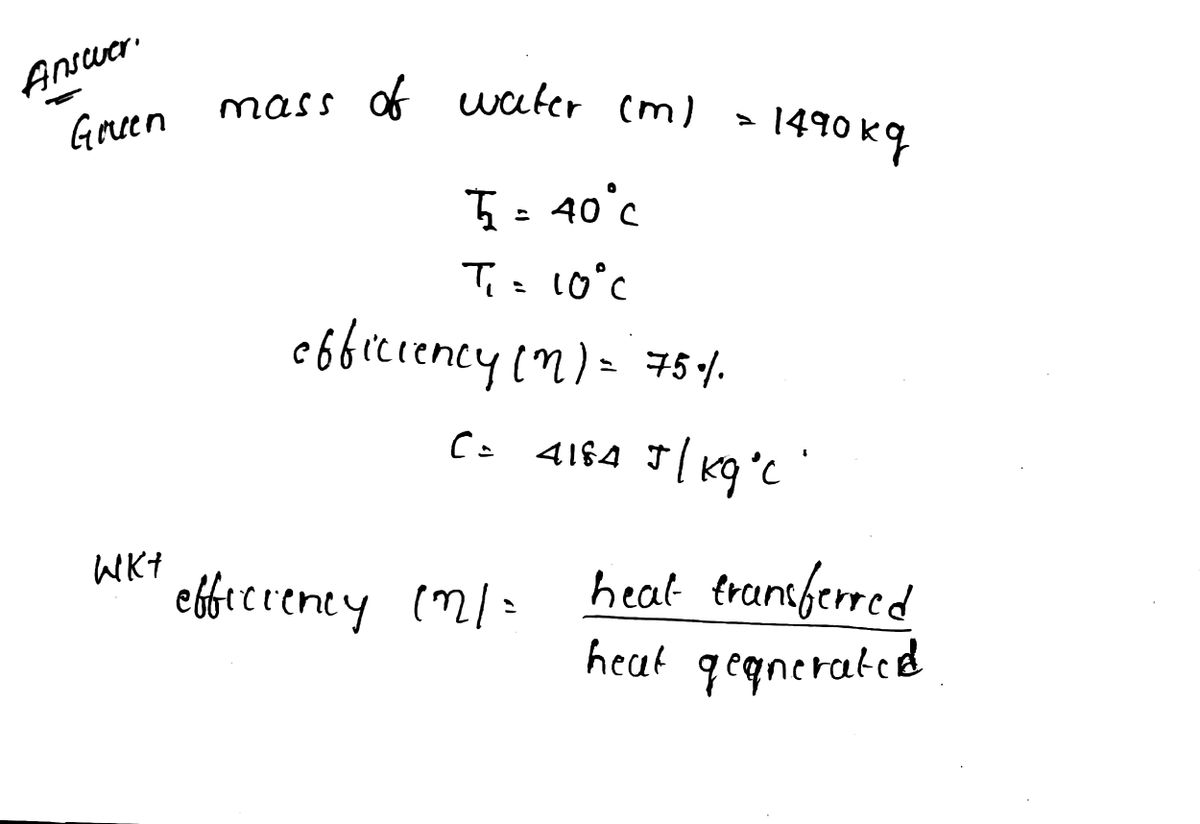 Answer.
Given mass of water (m) = 1490 kg
T₂ = 40°C
T₁ = 10°C
efficiency (η) = 75%.
C = 4184 J/kg°C
WKt efficiency (η) = heat transferred
heat gegnerated